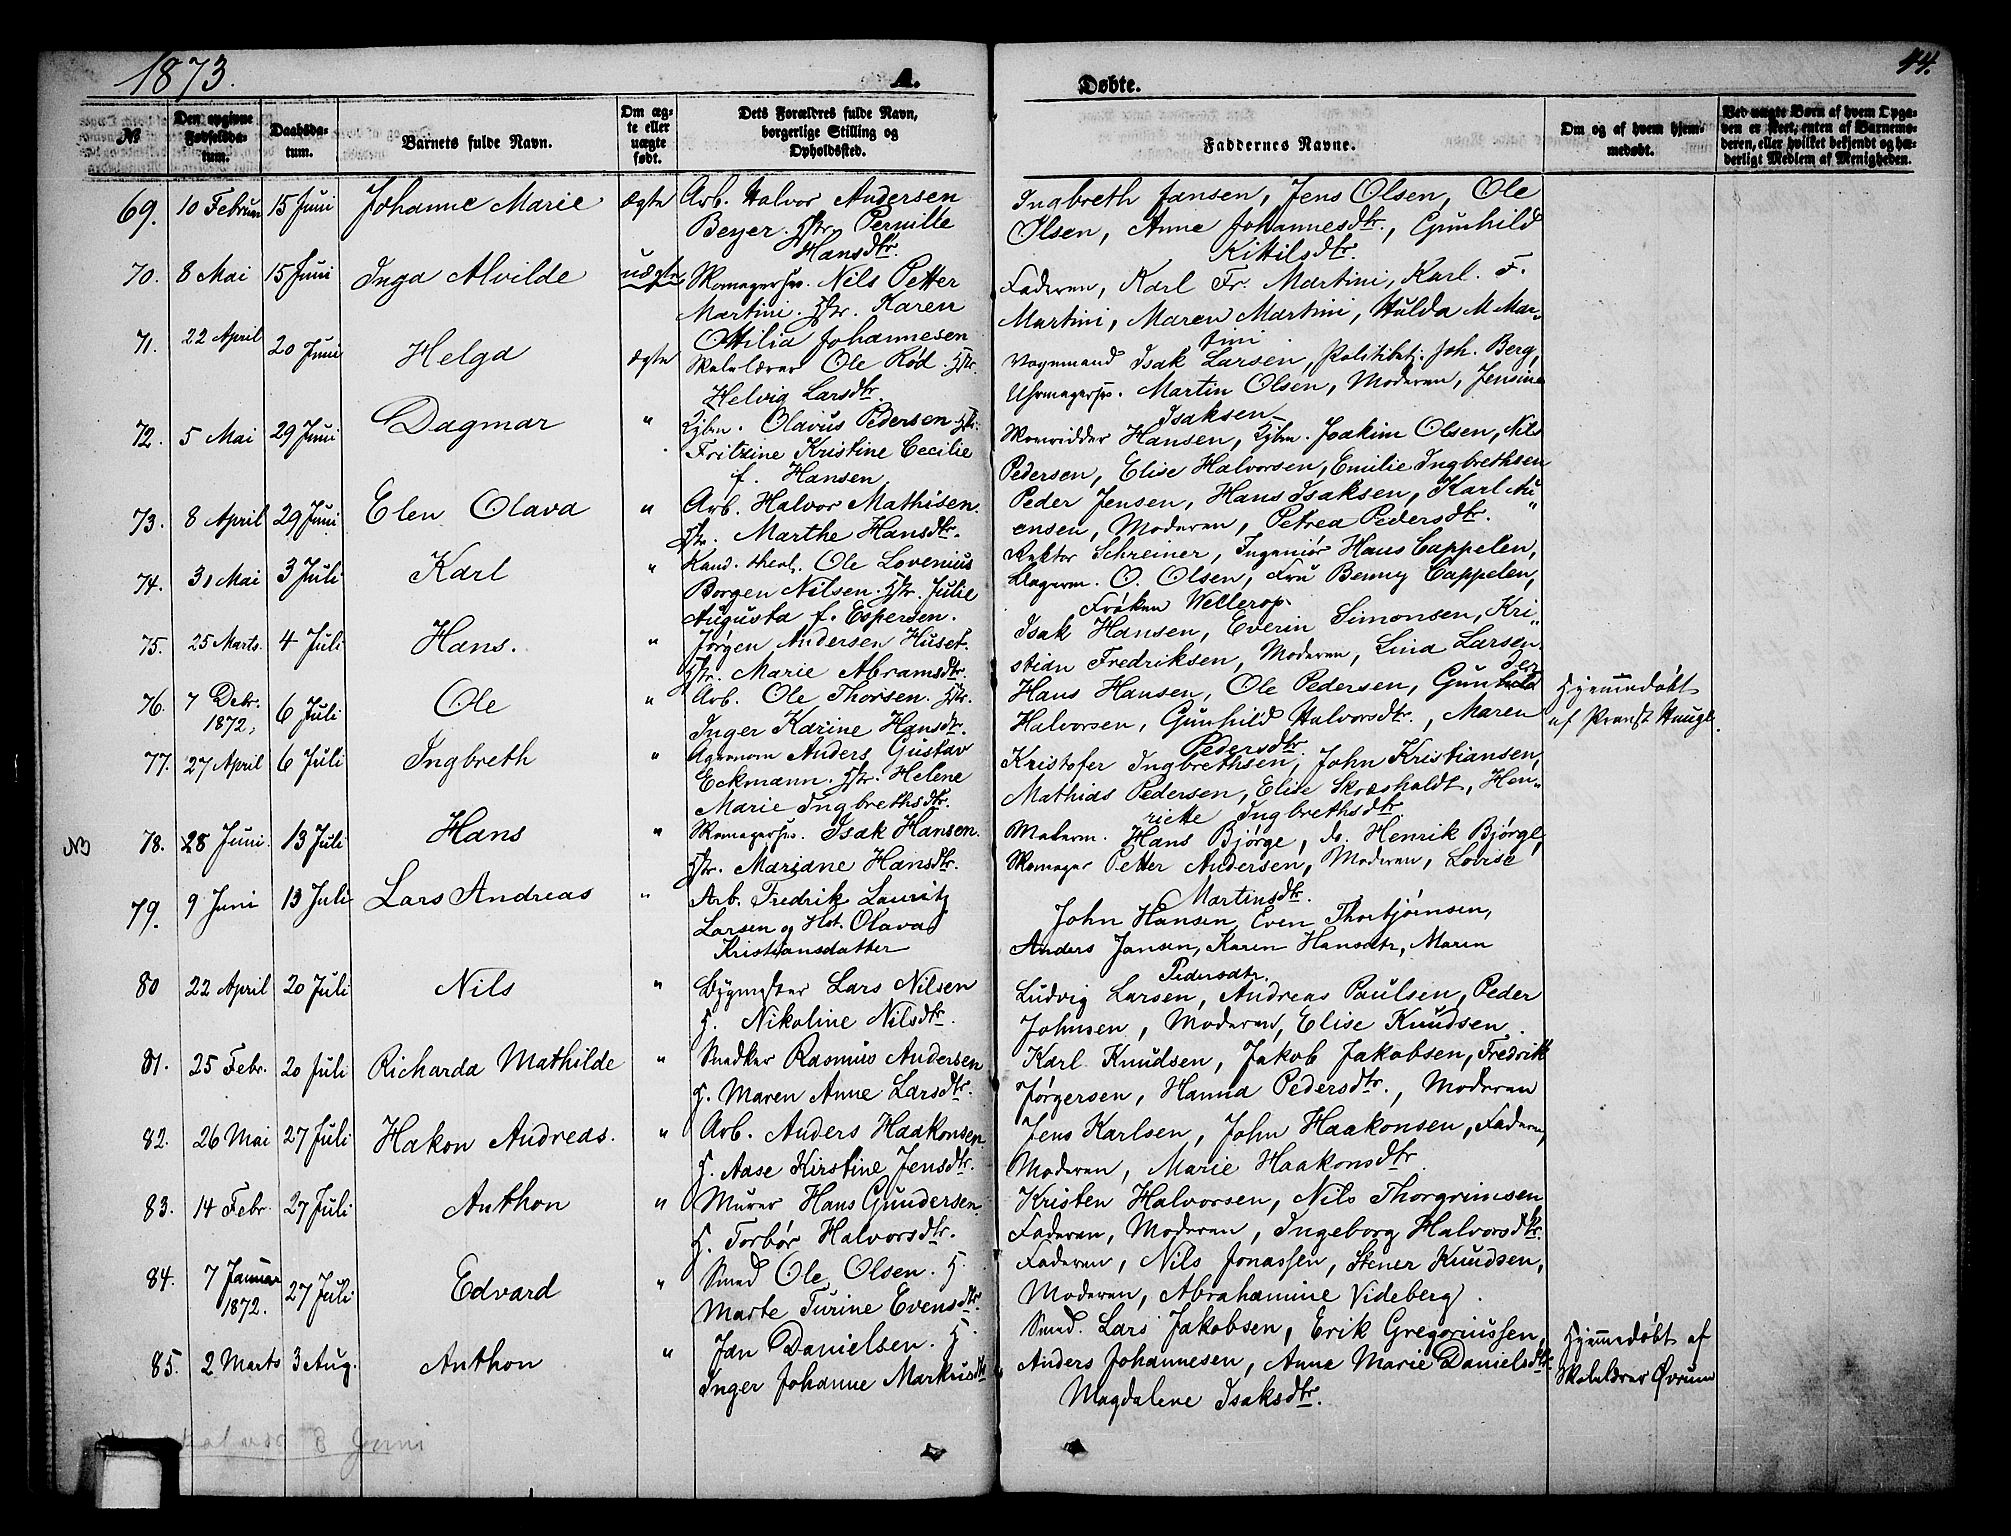 1873.
A.
Døbte.
44.
No
Den opgivne Fødselsdatum.
Daabsdatum.
Barnets fulde Navn.
Om ægte eller uægte født.
Dets Forældres fulde Navn, borgerlige Stilling og Opholdssted.
Faddernes Navne.
Om og af hvem hjemmedøbt.
Ved uægte Børn af hvem Opgaven er skeet, enten af Barnemoderen, eller hvilket bekjendt og hæderligt Medlem af Menigheden.
69. 10 Februar 15 Juni Johanne Marie ægte Arb. Halvor Andersen
Beyer. Hstr. Pernille
Hansdtr.
Ingbreth Jansen, Jens Olsen, Ole
Olsen, Anne Johannesdtr., Gunhild
Kittilsdtr.
70. 8 Mai 15 Juni Inga Alvilde uægte Skomagersv. Nils Petter
Martini. Hstr. Karen
Ottilia Johannesen
Faderen, Karl Fr. Martini, Karl. F.
Martini, Maren Martini, Hulda M Mar-
tini.
71. 22 April 20 Juni Helga ægte Skolelærer Ole Rød. Hstr.
Helvig Larsdtr.
Vognmand Isak Larsen, Politibtj. Joh. Berg,
Uhrmagersv. Martin Olsen, Moderen, Jensine
Isaksen
72. 5 Mai 29 Juni Dagmar " Kjbm. Olavus Pedersen Hstr.
Fritzine Kristine Cecilie
f. Hansen
Skovridder Hansen, Kjbm. Joakim Olsen, Nils
Pedersen, Elise Halvorsen, Emilie Ingbrethsen
73. 8 April 29 Juni Elen Olava " Arb. Halvor Mathisen.
Hstr. Marthe Hansdtr.
Peder Jensen, Hans Isaksen, Karl Ni
ensen, Moderen, Petrea Pedersdtr.
74. 31 Mai 3 Juli Karl " Kand. theol. Ole Lovenius
Borgen Nilsen. Hstr. Julie
Augusta f. Espersen.
Rektor Schreiner, Ingeniør Hans Cappelen,
O. Olsen, Fru Benny Cappelen,
Frøken Wellerop
75. 25 Marts. 4 Juli Hans. " Jørgen Andersen Huset.
Hstr. Marie Abramsdtr.
Isak Hansen, Everin Simonsen, Kri-
stian Fredriksen, Moderen, Lina Larsen
76. 7 Debr. 1872, 6 Juli Ole " Arb. Ole Thorsen. Hstr.
Inger Karine Hansdtr.
Hans Hansen, Ole Pedersen, Gun
Halvorsen, Gunhild Halvorsdtr., Maren
Pedersdtr.
Hjemmedøbt
af Provst Hauge.
77. 27 April 6 Juli Ingbreth " Agronom Anders Gustav
Eckmann. Hstr. Helene
Marie Ingbrethsdtr.
Kristofer Ingbrethsen, John Kristiansen,
Mathias Pedersen, Elise Skoesholdt, Hen-
riette Ingbrethsdtr.
NB 78. 28 Juni. 13 Juli Hans " Skomagersv. Isak Hansen.
Hstr. Mariane Hansdtr.
Malerm. Hans Bjørge, do. Henrik Bjørge,
Skomager Petter Andersen, Moderen, Lovise
Martinsdtr.
79. 9 Juni 13 Juli Lars Andreas " Arb. Fredrik Lauritz
Larsen og Hst. Olava
Kristiansdatter
John Hansen, Even Thorbjørnsen,
Anders Jansen, Karen Hansdtr, Maren
Pedersdtr.
80 22 April 20 Juli Nils " Bygmester Lars Nilsen
H. Nikoline Nilsdtr.
Ludvig Larsen, Andreas Paulsen, Peder
Johnsen, Moderen, Elise Knudsen.
81. 25 Febr. 20 Juli Richarda Mathilde " Snedker Rasmus Andersen
H. Maren Anne Larsdtr.
Karl Knudsen, Jakob Jakobsen, Fredrik
Jørgersen, Hanna Pedersdtr., Moderen
82. 26 Mai 27 Juli Hakon Andreas. " Arb. Anders Haakonsen
H. Aase Kirstine Jensdtr.
Jens Karlsen, John Haakonsen, Faderen,
Moderen, Marie Haakonsdtr
83. 14 Febr. 27 Juli Anthon " Murer Hans Gundersen
H. Torbør Halvorsdtr.
Kristen Halvorsen, Nils Thorgrimsen
Faderen, Moderen, Ingeborg Halvorsdtr.
84. 7 Januar 1872. 27 Juli Edvard " Smed Ole Olsen. H.
Marte Turine Evensdtr.
Faderen, Nils Jonassen, Stener Knudsen,
Moderen, Abrahamine Videberg.
85. 2 Marts 3 Aug. Anthon " Jan Danielsen. H.
Inger Johanne Markusdtr
Smed. Lars Jakobsen, Erik Gregoriussen,
Anders Johannesen, Anne Marie Danielsdtr.
Magdalene Isaksdtr.
Hjemmedøbt af
Skolelærer Øvrum
8 Juni